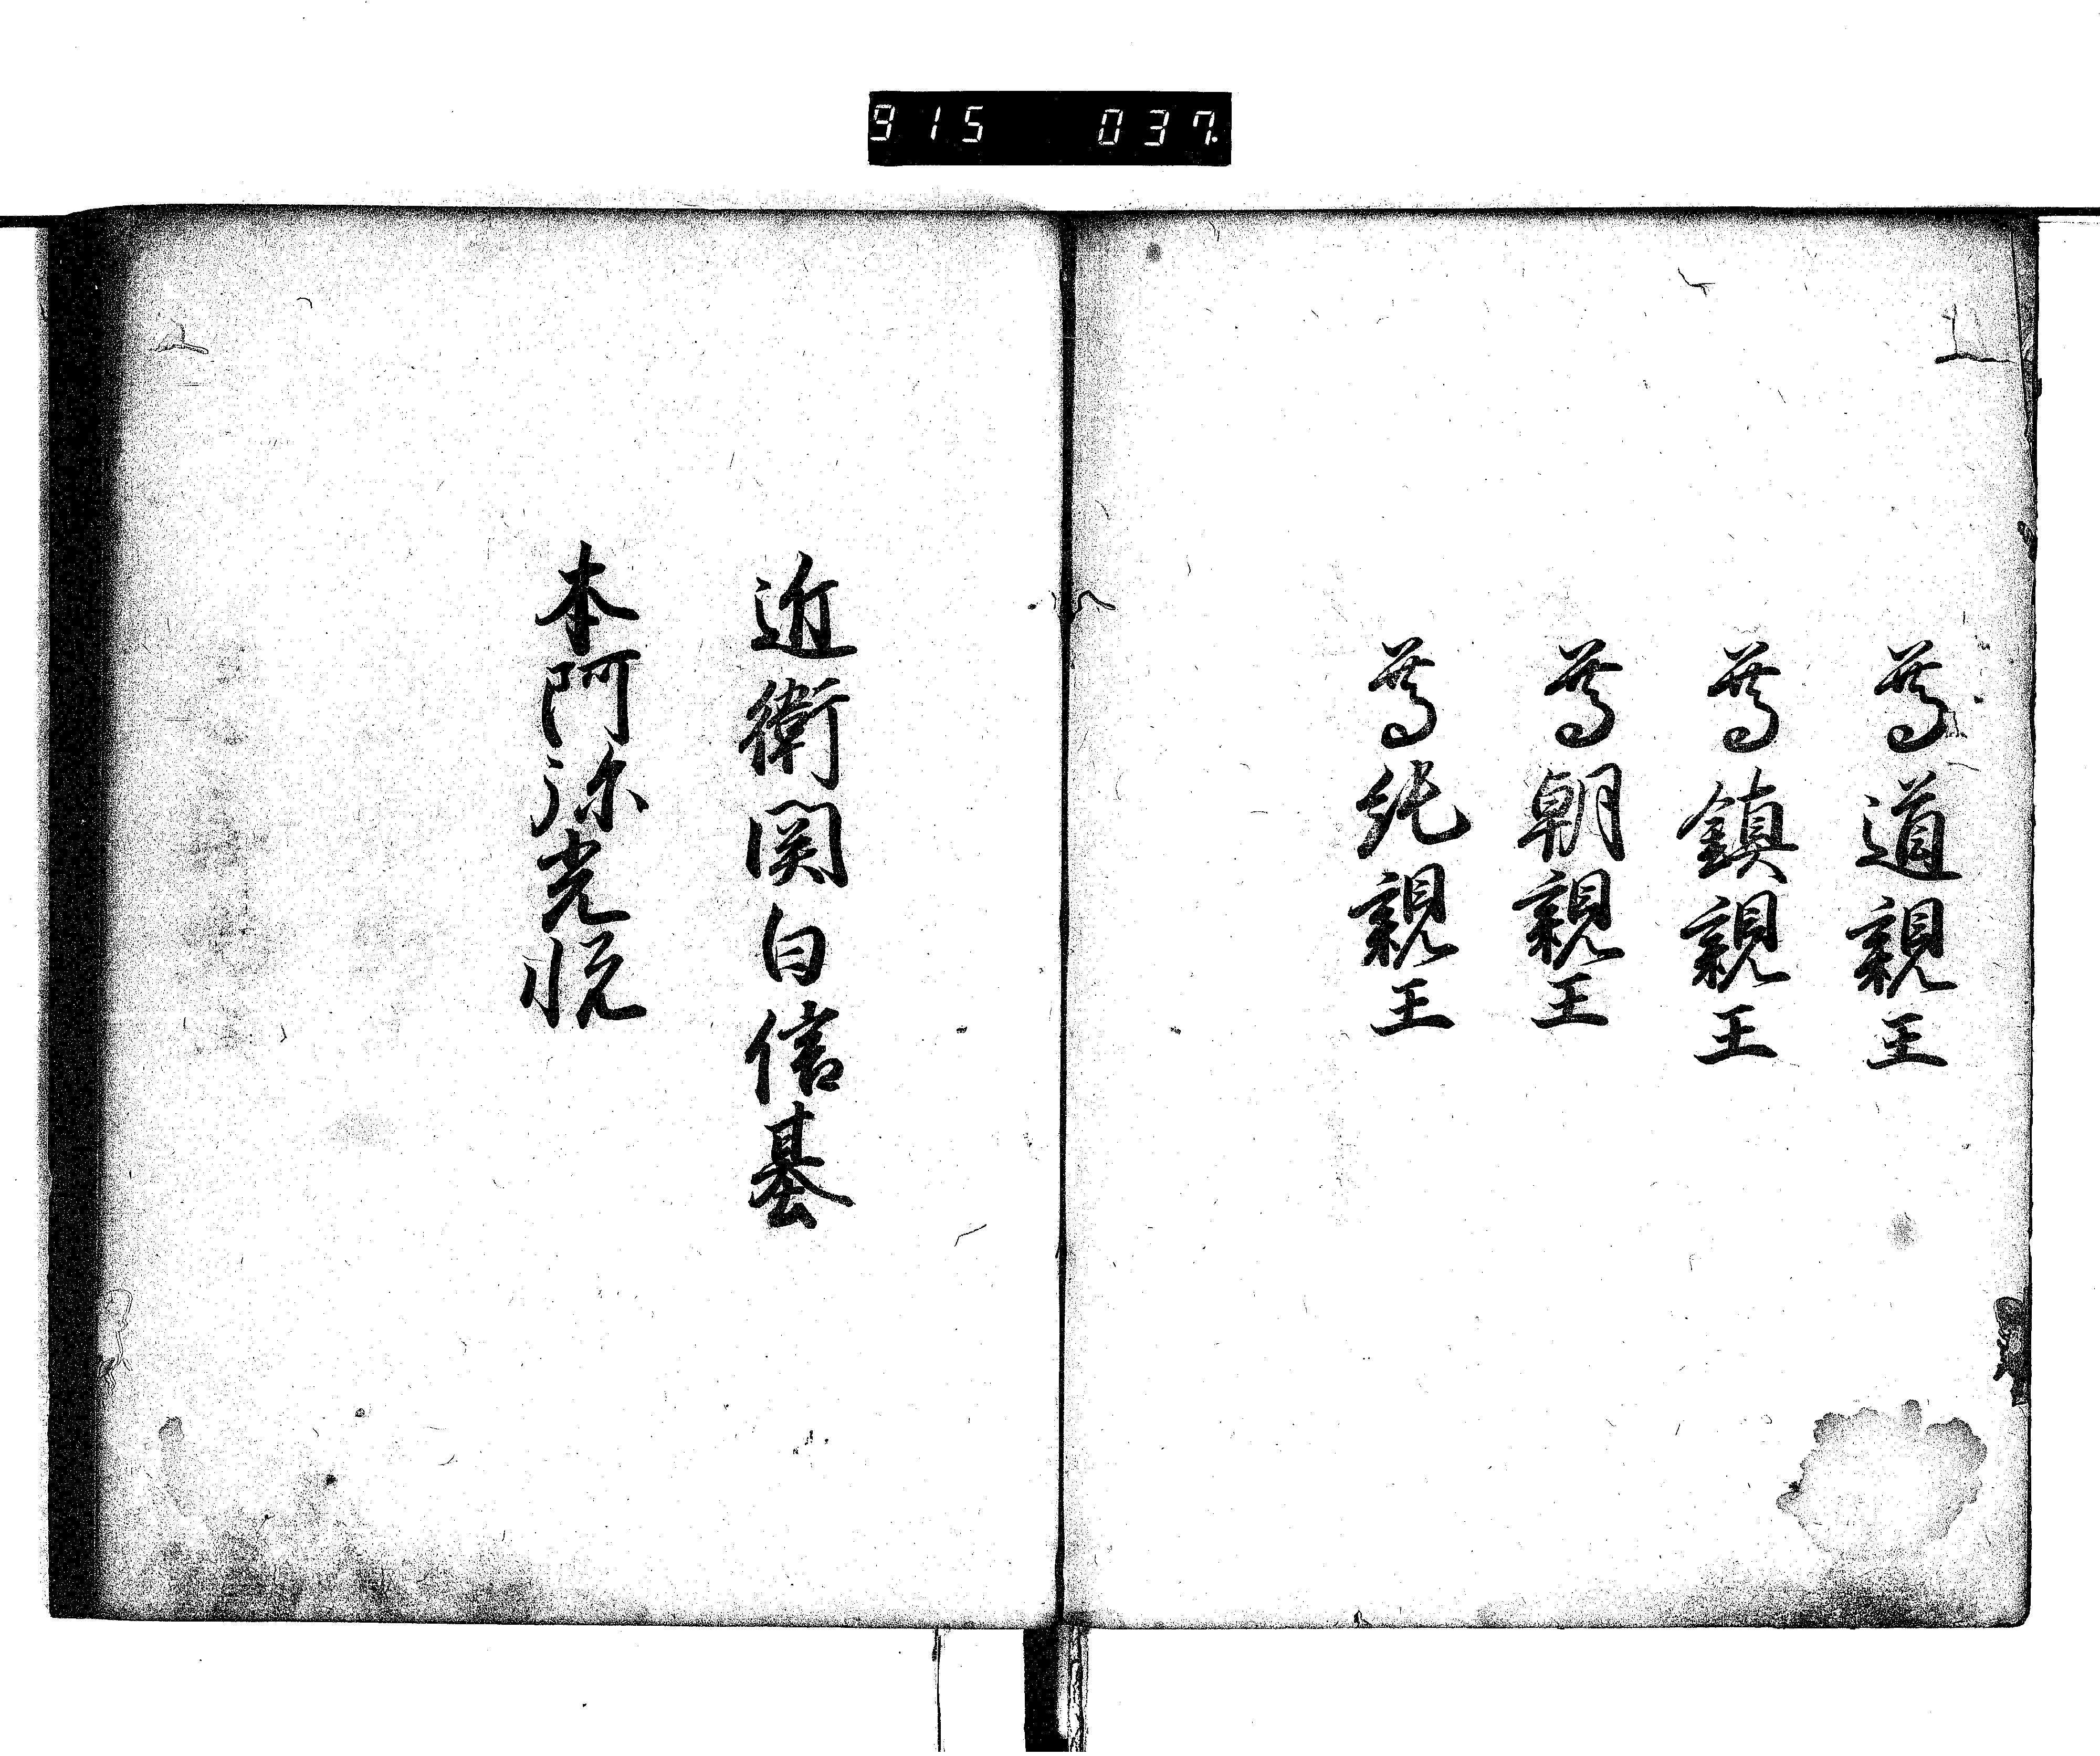 915 037
尊道親王
尊鎮親王
尊朝親王
尊純親王
近衛関白信基
本阿弥光悦